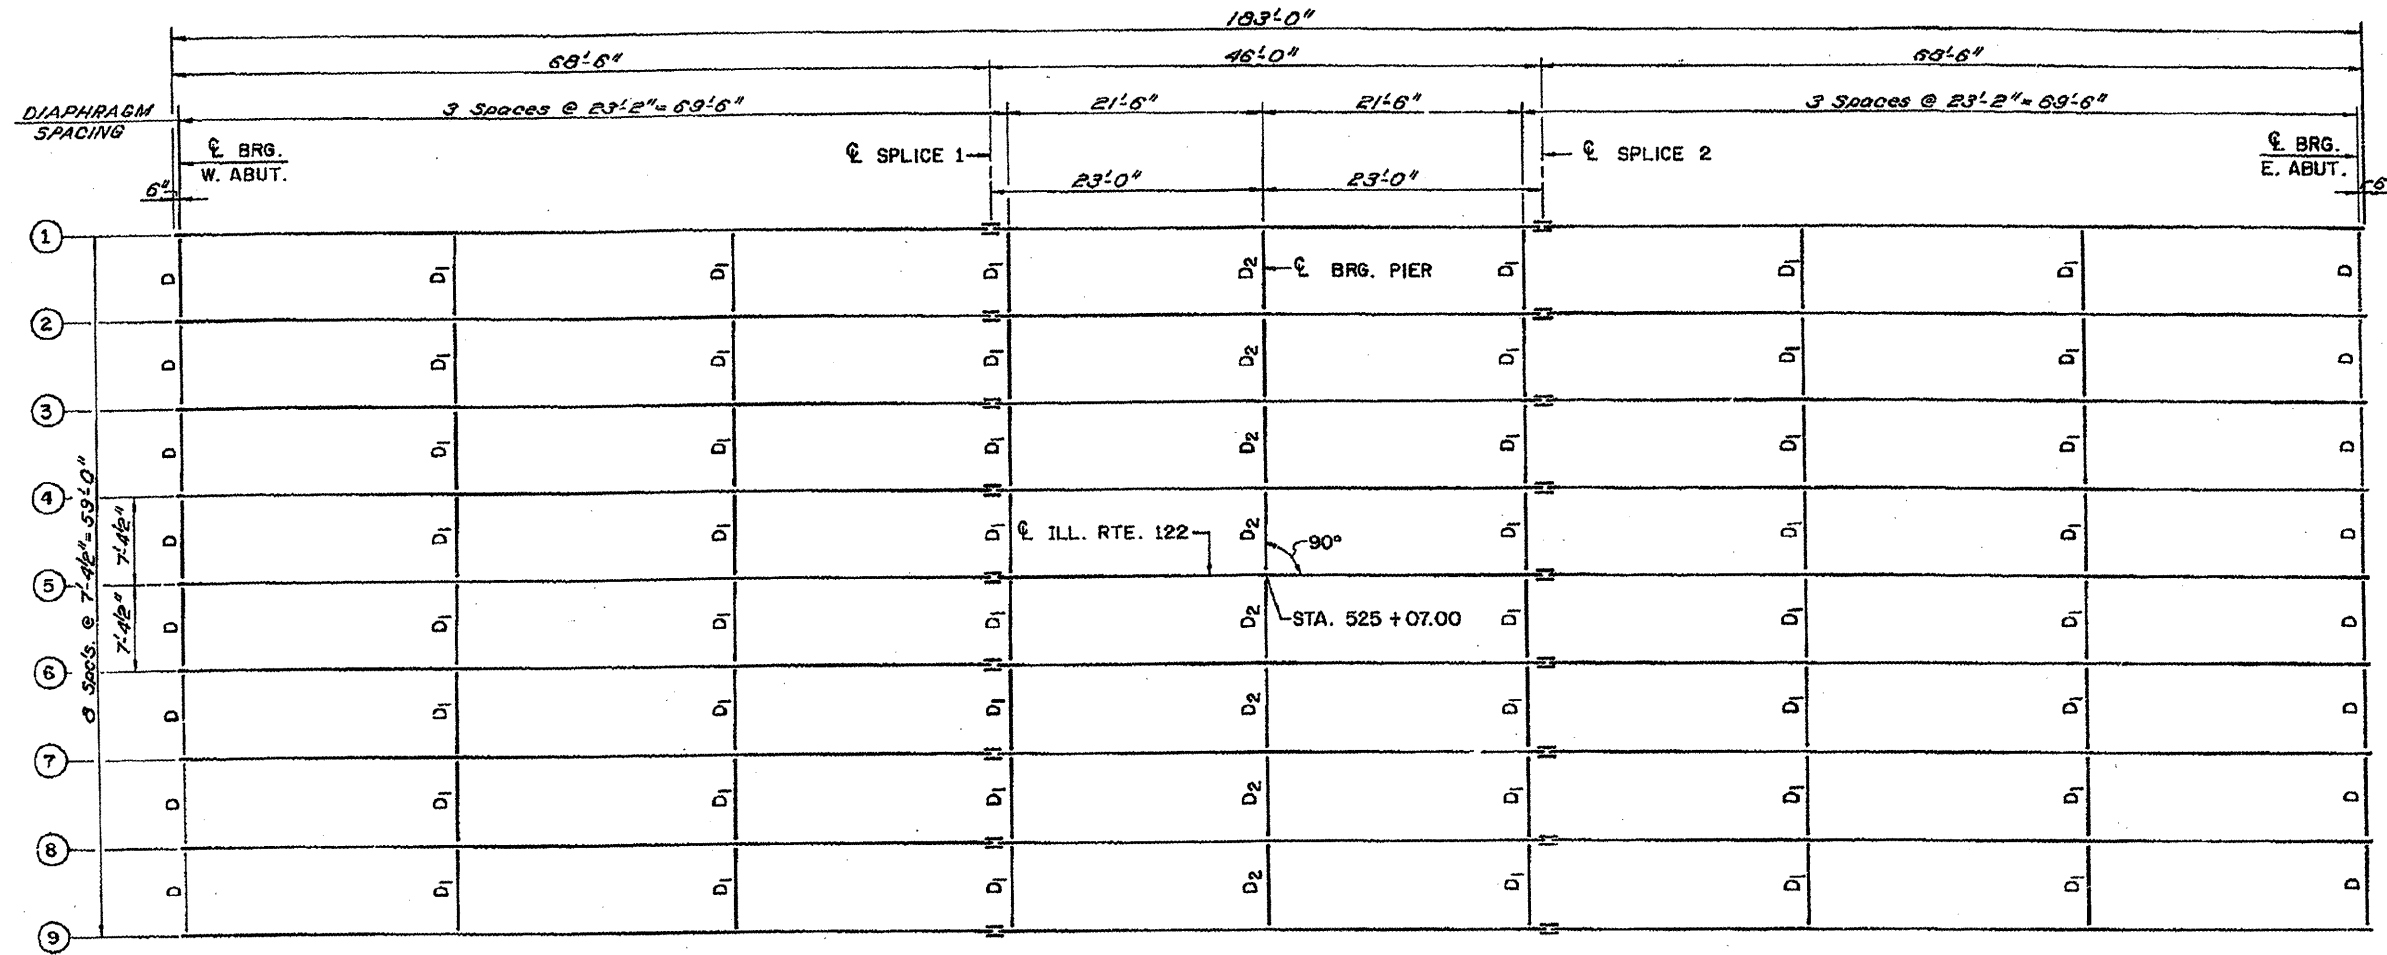 183'-0"
68'-6" 46'-0" 68'-6"
DIAPHRAGM SPACING
3 Spaces @ 23'-2" = 69'-6" 21'-6" 21'-6" 3 Spaces @ 23'-2" = 69'-6"
℄ BRG.
W. ABUT.
℄ SPLICE 1
℄ SPLICE 2
℄ BRG.
E. ABUT.
6" 23'-0" 23'-0" 6
1
D D1 D1 D1 D2 ℄ BRG. PIER D1 D1 D1 D
2
D D1 D1 D1 D2 D1 D1 D1 D
3
D D1 D1 D1 D2 D1 D1 D1 D
4
8 Spc's. @ 7'-4½" = 59'-0"
7'-4½"
D D1 D1 D1 ℄ ILL. RTE. 122 D2 90° D1 D1 D1 D
5
7'-4½"
D D1 D1 D1 D2 STA. 525 + 07.00 D1 D1 D1 D
6
D D1 D1 D1 D2 D1 D1 D1 D
7
D D1 D1 D1 D2 D1 D1 D1 D
8
D D1 D1 D1 D2 D1 D1 D1 D
9